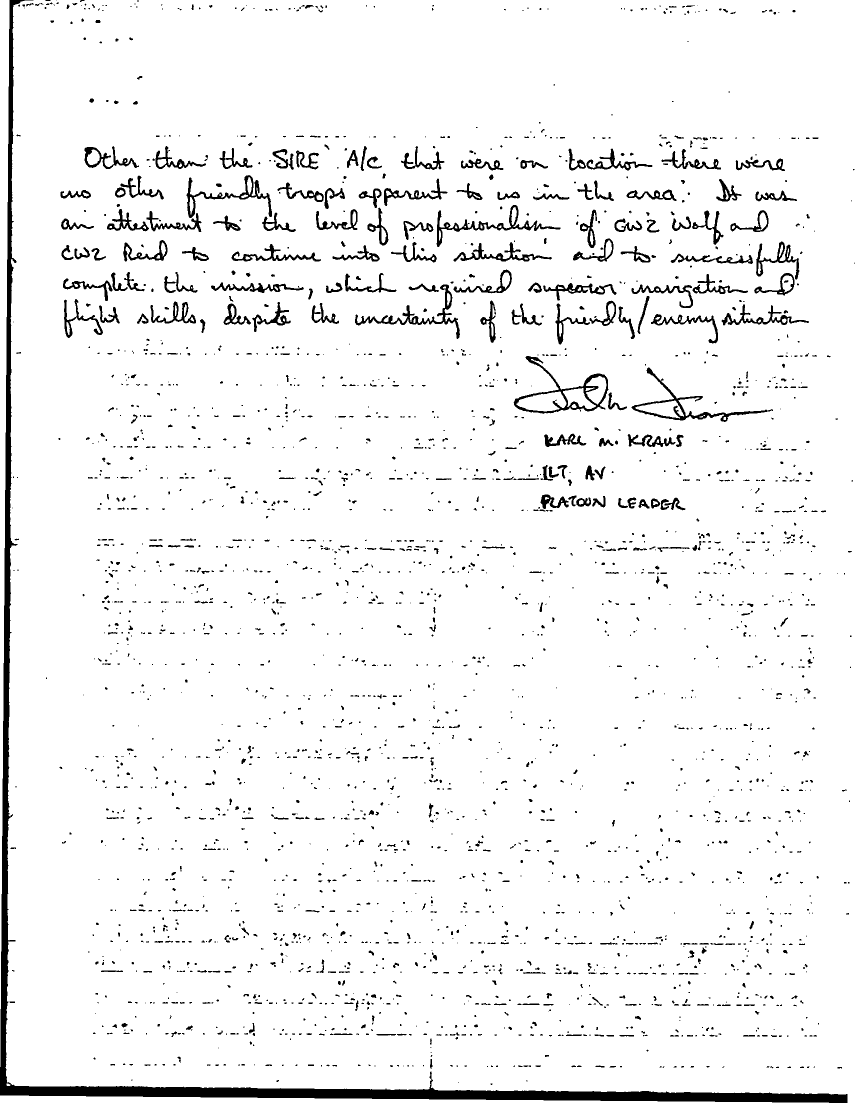 Other than the SIRE A/C that were on location there were
no other friendly troops apparent to us in the area. It was
an attestiment to the level of professionalism of CW2 Wolf and
CW2 Reid to continue into this situation and to successfully
complete the mission, which required superior navigation and
flight skills, despite the uncertainty of the friendly/enemy situation
KARL M. KRAUS
1LT, AV
PLATOON LEADER